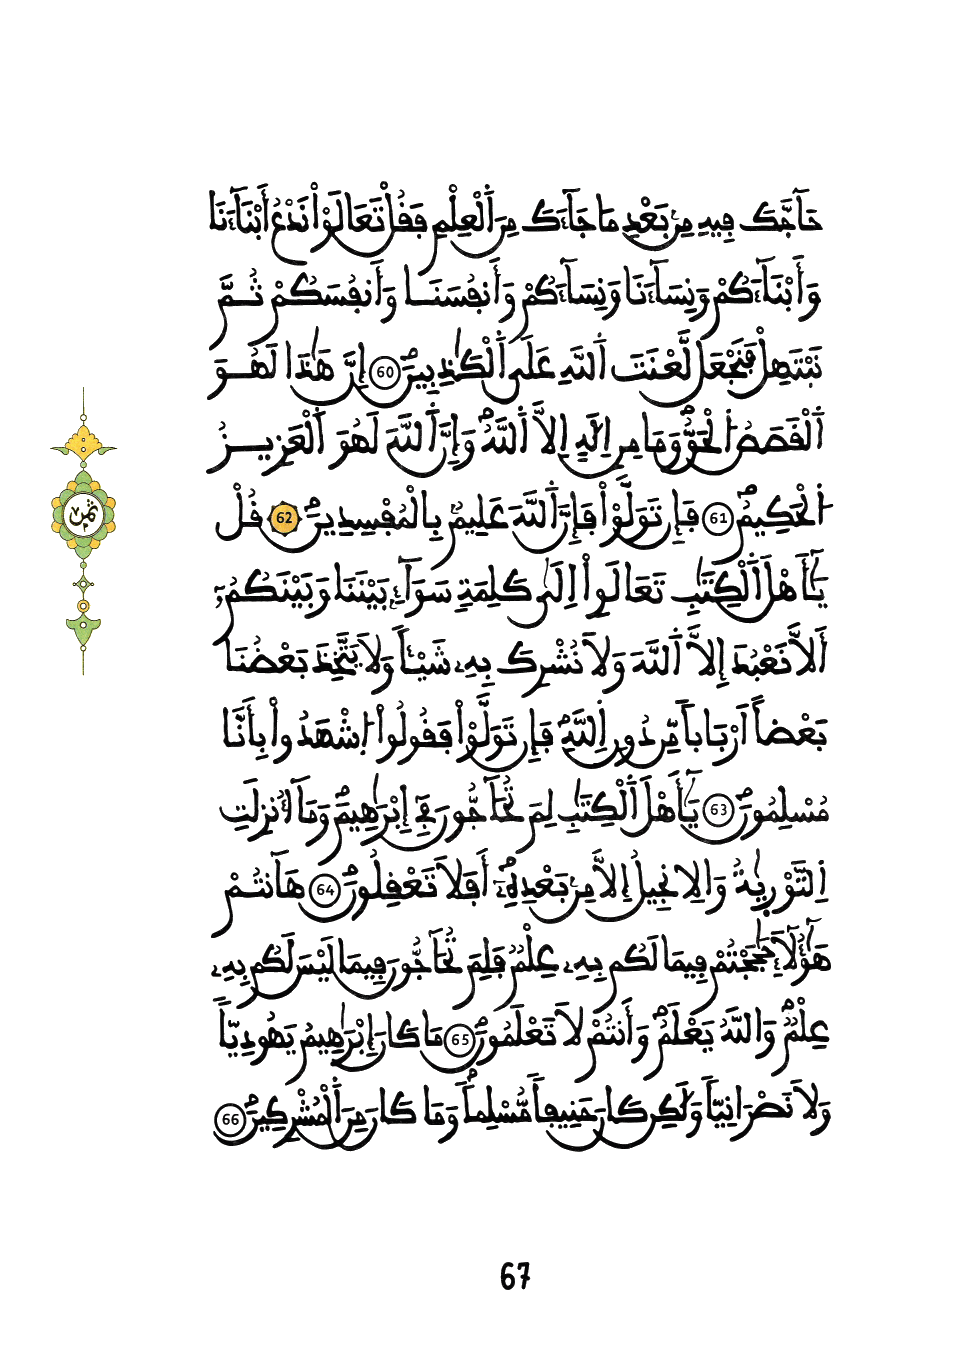 حَآجَّكَ فِيهِ مِنۢ بَعْدِ مَا جَآءَكَ مِنَ اَ۬لْعِلْمِ فَقُلْ تَعَالَوْاْ نَدْعُ أَبْنَآءَنَا
وَأَبْنَآءَكُمْ وَنِسَآءَنَا وَنِسَآءَكُمْ وَأَنفُسَنَا وَأَنفُسَكُمْ ثُمَّ
نَبْتَهِلْ فَنَجْعَل لَّعْنَتَ اَ۬للَّهِ عَلَي اَ۬لْكَٰذِبِينَۖ 60 إِنَّ هَٰذَا لَهُوَ
اَ۬لْقَصَصُ اُ۬لْحَقُّۖ وَمَا مِنِ اِلَٰهٍ اِلَّا اَ۬للَّهُۖ وَإِنَّ اَ۬للَّهَ لَهُوَ اَ۬لْعَزِيزُ
اُ۬لْحَكِيمُۖ 61 فَإِن تَوَلَّوْاْ فَإِنَّ اَ۬للَّهَ عَلِيمُۢ بِالْمُفْسِدِينَۖ 62 قُلْ
يَٰٓأَهْلَ اَ۬لْكِتَٰبِ تَعَالَوِاْ اِلَيٰ كَلِمَةٖ سَوَآءِۢ بَيْنَنَا وَبَيْنَكُمُۥٓ
أَلَّا نَعْبُدَ إِلَّا اَ۬للَّهَ وَلَا نُشْرِكَ بِهِۦ شَيْـٔاٗ وَلَا يَتَّخِذَ بَعْضُنَا
بَعْضاً اَرْبَاباٗ مِّن دُونِ اِ۬للَّهِۖ فَإِن تَوَلَّوْاْ فَقُولُواْ اُ۪شْهَدُواْ بِأَنَّا
مُسْلِمُونَۖ 63 يَٰٓأَهْلَ اَ۬لْكِتَٰبِ لِمَ تُحَآجُّونَ فِےٓ إِبْرَٰهِيمَۖ وَمَآ أُنزِلَتِ
اِ۬لتَّوْرَيٰةُ وَالِانجِيلُ إِلَّا مِنۢ بَعْدِهِۦٓۖ أَفَلَا تَعْقِلُونَۖ 64 هَآنتُمْ
هَٰٓؤُلَآءِ حَٰجَجْتُمْ فِيمَا لَكُم بِهِۦ عِلْمٞ فَلِمَ تُحَآجُّونَ فِيمَا لَيْسَ لَكُم بِهِۦ
عِلْمٞۖ وَاللَّهُ يَعْلَمُۖ وَأَنتُمْ لَا تَعْلَمُونَۖ 65 مَا كَانَ إِبْرَٰهِيمُ يَهُودِيّاٗ
وَلَا نَصْرَانِيّاٗ وَلَٰكِن كَانَ حَنِيفاٗ مُّسْلِماٗۖ وَمَا كَانَ مِنَ اَ۬لْمُشْرِكِينَۖ 66
ثمن
67